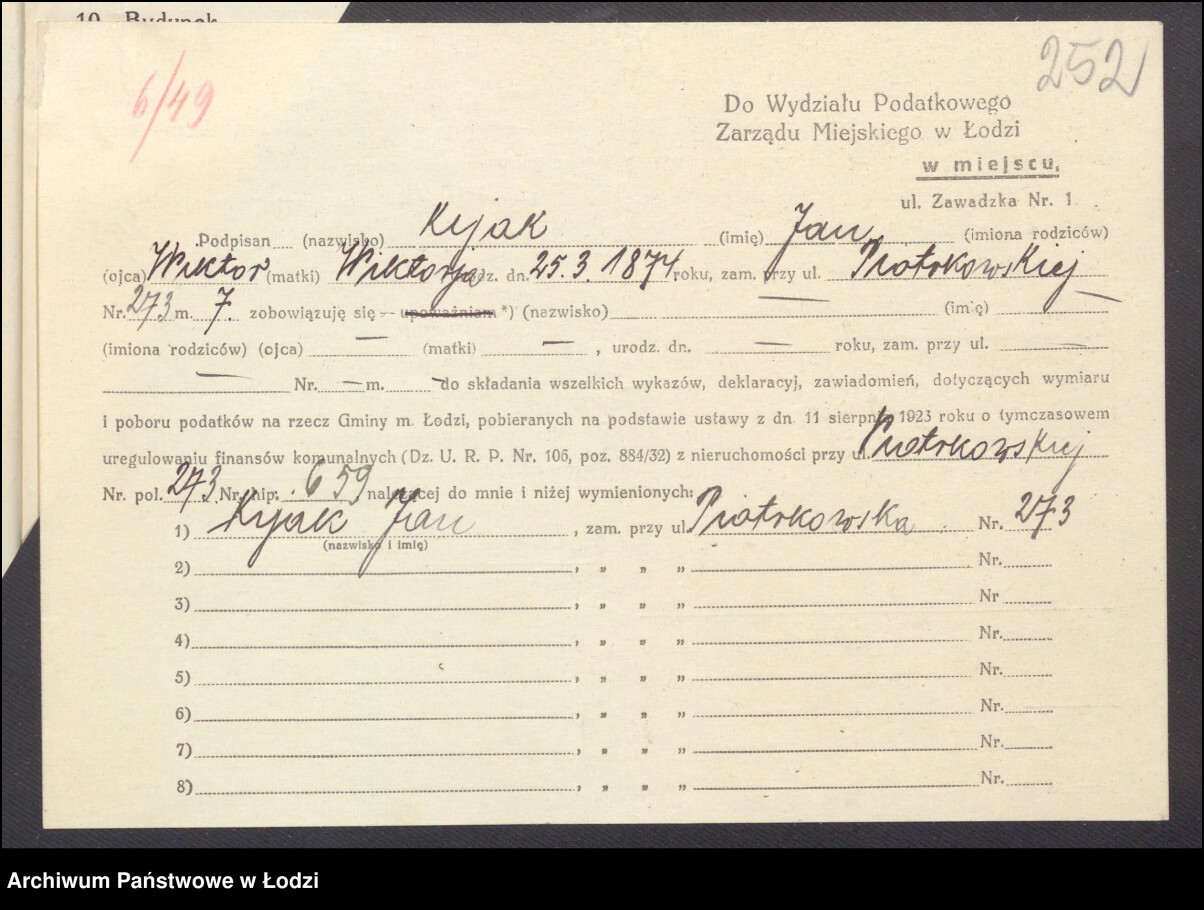 10. Budynek
6/49
252
Do Wydziału Podatkowego
Zarządu Miejskiego w Łodzi
w miejscu,
ul. Zawadzka Nr. 1
Podpisan (nazwisko) Kijak (imię) Jan (imiona rodziców)
(ojca) Wiktor (matki) Wiktorja urodz. dn. 25.3.1874 roku, zam. przy ul. Piotrkowskiej
Nr. 273 m. 7. zobowiązuję się – upoważniam *) (nazwisko) — (imię) —
(imiona rodziców) (ojca) — (matki) — , urodz. dn. — roku, zam. przy ul. —
— Nr. — m. — do składania wszelkich wykazów, deklaracyj, zawiadomień, dotyczących wymiaru
i poboru podatków na rzecz Gminy m. Łodzi, pobieranych na podstawie ustawy z dn. 11 sierpnia 1923 roku o tymczasowem
uregulowaniu finansów komunalnych (Dz. U. R. P. Nr. 106, poz. 884/32) z nieruchomości przy ul. Piotrkowskiej
Nr. pol. 273 Nr. hip. 659 należącej do mnie i niżej wymienionych:
1) Kijak Jan , zam. przy ul. Piotrkowska Nr. 273
(nazwisko i imię)
2) , „ „ „ Nr.
3) , „ „ „ Nr
4) , „ „ „ Nr.
5) , „ „ „ Nr.
6) , „ „ „ Nr.
7) , „ „ „ Nr.
8) , „ „ „ Nr.
Archiwum Państwowe w Łodzi